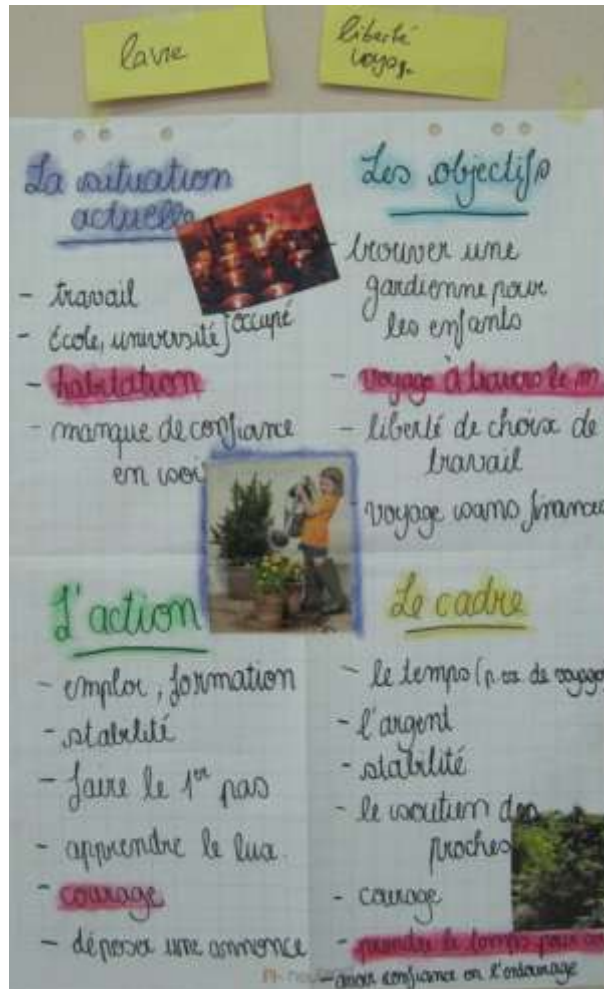 la vie
liberté
voyag.
La situation
actuelle
- travail
- école, université } occupé
- habitation
- manque de confiance
en soi
Les objectifs
- trouver une
gardienne pour
les enfants
- voyage à travers le m
- liberté de choix de
travail
- voyage sans financ
L'action
- emploi, formation
- stabilité
- faire le 1er pas
- apprendre le lux.
- courage
- déposer une annonce
Le cadre
- le temps (p. ex. de voyager
- l'argent
- stabilité
- le soutien des
proches
- courage
- prendre le temps pour
- avoir confiance en l'entourage